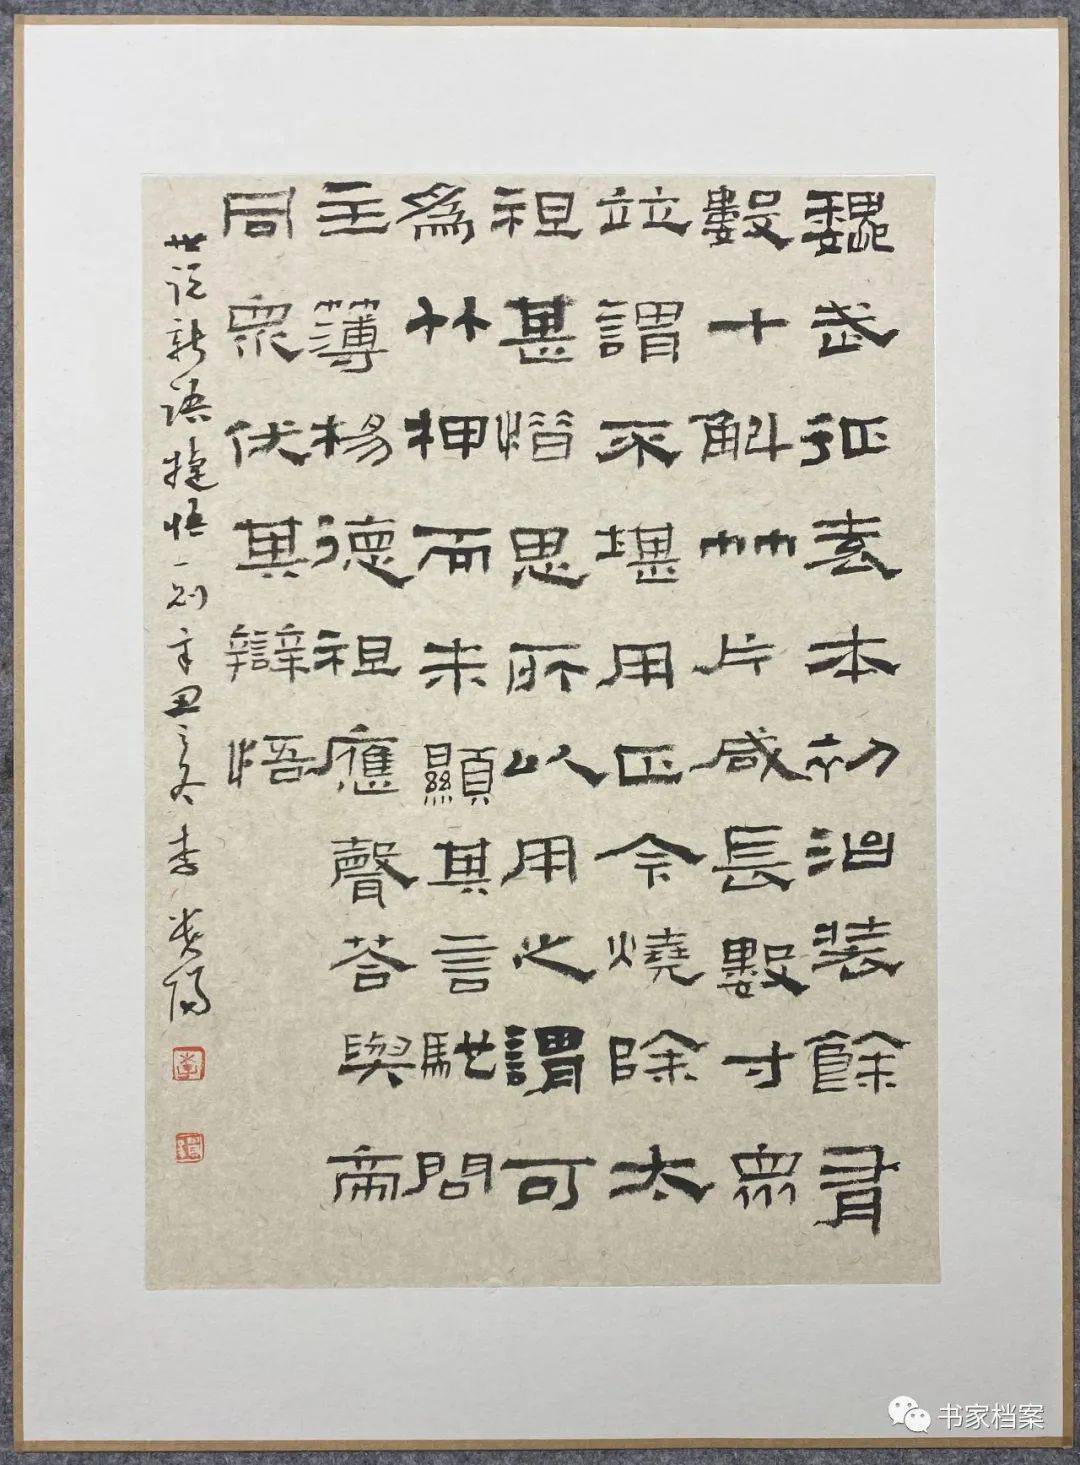 魏武征袁本初治装餘有
數十斛竹片咸長數寸眾
竝謂不堪用正令燒除太
祖甚惜思所以用之謂可
爲竹柙而未顯其言馳問
主薄楊德祖應聲荅與帝
同眾伏其辯悟
世说新语捷悟一则辛丑之冬李
书家档案